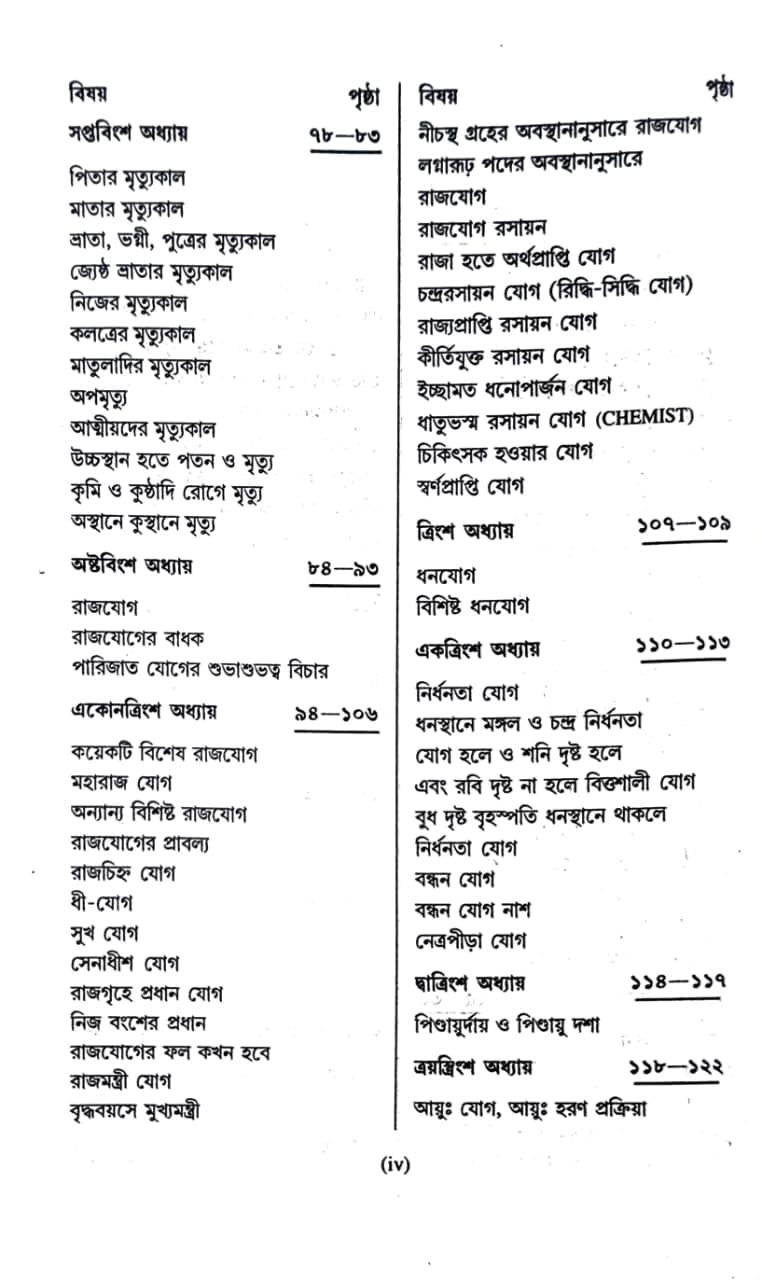 বিষয় পৃষ্ঠা
সপ্তবিংশ অধ্যায় ৭৮—৮৩
পিতার মৃত্যুকাল
মাতার মৃত্যুকাল
ভ্রাতা, ভগ্নী, পুত্রের মৃত্যুকাল
জ্যেষ্ঠ ভ্রাতার মৃত্যুকাল
নিজের মৃত্যুকাল
কলত্রের মৃত্যুকাল
মাতুলাদির মৃত্যুকাল
অপমৃত্যু
আত্মীয়দের মৃত্যুকাল
উচ্চস্থান হতে পতন ও মৃত্যু
কৃমি ও কুষ্ঠাদি রোগে মৃত্যু
অস্থানে কুস্থানে মৃত্যু
অষ্টবিংশ অধ্যায় ৮৪—৯৩
রাজযোগ
রাজযোগের বাধক
পারিজাত যোগের শুভাশুভত্ব বিচার
একোনত্রিংশ অধ্যায় ৯৪—১০৬
কয়েকটি বিশেষ রাজযোগ
মহারাজ যোগ
অন্যান্য বিশিষ্ট রাজযোগ
রাজযোগের প্রাবল্য
রাজচিহ্ন যোগ
ধী-যোগ
সুখ যোগ
সেনাধীশ যোগ
রাজগৃহে প্রধান যোগ
নিজ বংশের প্রধান
রাজযোগের ফল কখন হবে
রাজমন্ত্রী যোগ
বৃদ্ধবয়সে মুখ্যমন্ত্রী
বিষয় পৃষ্ঠা
নীচস্থ গ্রহের অবস্থানানুসারে রাজযোগ
লগ্নারূঢ় পদের অবস্থানানুসারে
রাজযোগ
রাজযোগ রসায়ন
রাজা হতে অর্থপ্রাপ্তি যোগ
চন্দ্ররসায়ন যোগ (রিদ্ধি-সিদ্ধি যোগ)
রাজ্যপ্রাপ্তি রসায়ন যোগ
কীর্তিযুক্ত রসায়ন যোগ
ইচ্ছামত ধনোপার্জন যোগ
ধাতুভস্ম রসায়ন যোগ (CHEMIST)
চিকিৎসক হওয়ার যোগ
স্বর্ণপ্রাপ্তি যোগ
ত্রিংশ অধ্যায় ১০৭—১০৯
ধনযোগ
বিশিষ্ট ধনযোগ
একত্রিংশ অধ্যায় ১১০—১১৩
নির্ধনতা যোগ
ধনস্থানে মঙ্গল ও চন্দ্র নির্ধনতা
যোগ হলে ও শনি দৃষ্ট হলে
এবং রবি দৃষ্ট না হলে বিত্তশালী যোগ
বুধ দৃষ্ট বৃহস্পতি ধনস্থানে থাকলে
নির্ধনতা যোগ
বন্ধন যোগ
বন্ধন যোগ নাশ
নেত্রপীড়া যোগ
দ্বাত্রিংশ অধ্যায় ১১৪—১১৭
পিণ্ডায়ুর্দায় ও পিণ্ডায়ু দশা
ত্রয়স্ত্রিংশ অধ্যায় ১১৮—১২২
আয়ুঃ যোগ, আয়ুঃ হরণ প্রক্রিয়া
(iv)